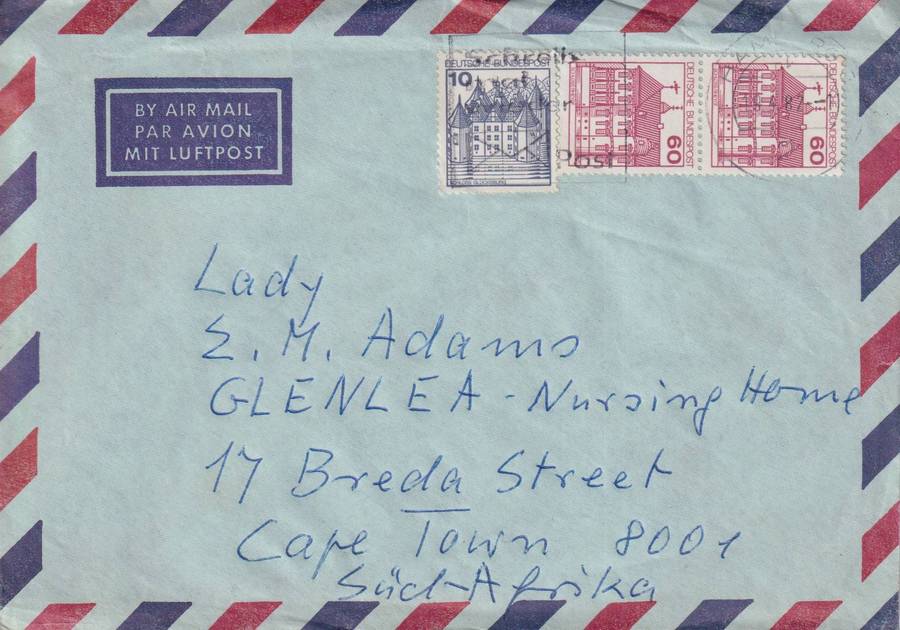 BY AIR MAIL
PAR AVION
MIT LUFTPOST
DEUTSCHE BUNDESPOST
10
SCHLOSS GLÜCKSBURG
DEUTSCHE BUNDESPOST
60
DEUTSCHE BUNDESPOST
60
Post
Lady
E. M. Adams
GLENLEA - Nursing Home
17 Breda Street
Cape Town 8001
Süd-Afrika